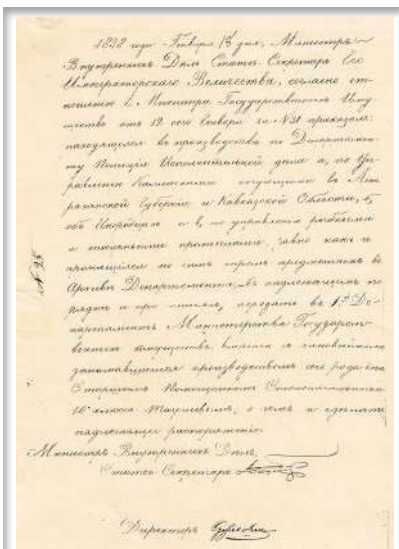 1838 года Генваря 13 дня, Министръ
Внутреннихъ Дѣлъ Статсъ Секретарь Его
Императорскаго Величества, согласно от-
ношенію Г. Министра Государственныхъ Иму-
ществъ отъ 12 сего Генваря за № 31 приказалъ:
находящіяся въ производствѣ по Департамен-
ту Полиціи Исполнительной дѣла а, по Уп-
равленію Калмыками кочующими въ Аст-
раханской Губерніи и Кавказской Области, б,
объ Инородцахъ и в, по управленію рыбными
и тюленьими промыслами, равно какъ и
хранящіяся по симъ тремъ предметамъ въ
Архивѣ Департамента, въ надлежащемъ по-
рядкѣ и при описяхъ, передать въ 1й Де-
партаментъ Министерства Государст-
венныхъ Имуществъ, вмѣстѣ съ чиновникомъ
занимавшимся производствомъ сего рода дѣлъ
Старшимъ Помощникомъ Столоначальника
10 класса о чемъ и сдѣлать
надлежащее распоряженіе.
Министръ Внутреннихъ Дѣлъ,
Статсъ Секретарь
Директоръ
№ 25